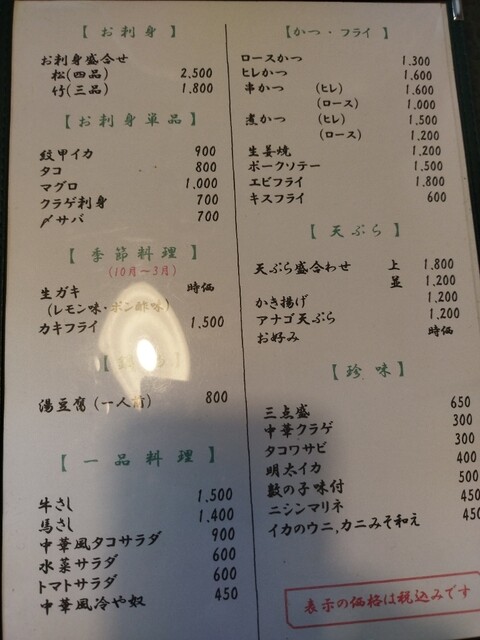 【お刺身】
お刺身盛合せ
松(四品) 2,500
竹(三品) 1,800
【お刺身単品】
紋甲イカ 900
タコ 800
マグロ 1,000
クラゲ刺身 700
〆サバ 700
【季節料理】
(10月〜3月)
生ガキ 時価
(レモン味・ポン酢味)
カキフライ 1,500
湯豆腐(一人前) 800
【一品料理】
牛さし 1,500
馬さし 1,400
中華風タコサラダ 900
水菜サラダ 600
トマトサラダ 600
中華風冷や奴 450
【かつ・フライ】
ロースかつ 1,300
ヒレかつ 1,600
串かつ (ヒレ) 1,600
(ロース) 1,000
煮かつ (ヒレ) 1,500
(ロース) 1,200
生姜焼 1,200
ポークソテー 1,500
エビフライ 1,800
キスフライ 600
【天ぷら】
天ぷら盛合わせ 上 1,800
並 1,200
かき揚げ 1,200
アナゴ天ぷら 1,200
お好み 時価
【珍味】
三点盛 650
中華クラゲ 300
タコワサビ 300
明太イカ 400
数の子味付 500
ニシンマリネ 450
イカのウニ,カニみそ和え 450
表示の価格は税込みです